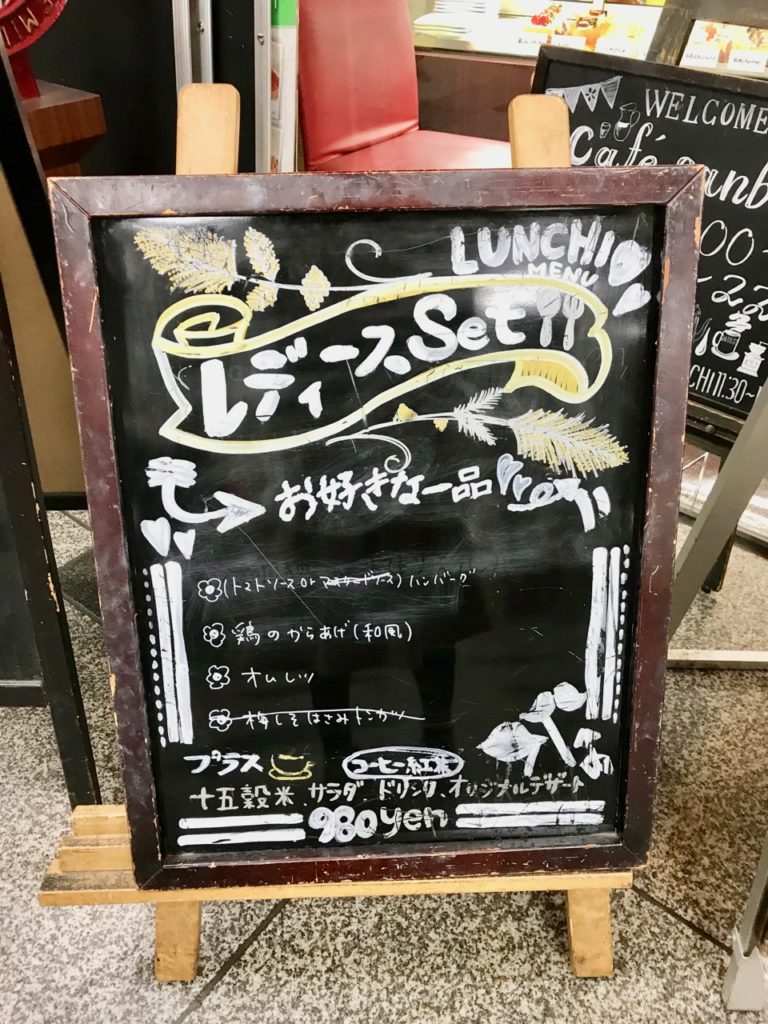 LUNCH
MENU
レディース Set
お好きな一品
(トマトソース or マスタードソース) ハンバーグ
鶏のからあげ(和風)
オムレツ
梅しそはさみトンカツ
プラス コーヒー紅茶
十五穀米、サラダ ドリンク、オリジナルデザート
980yen
WELCOME
Café